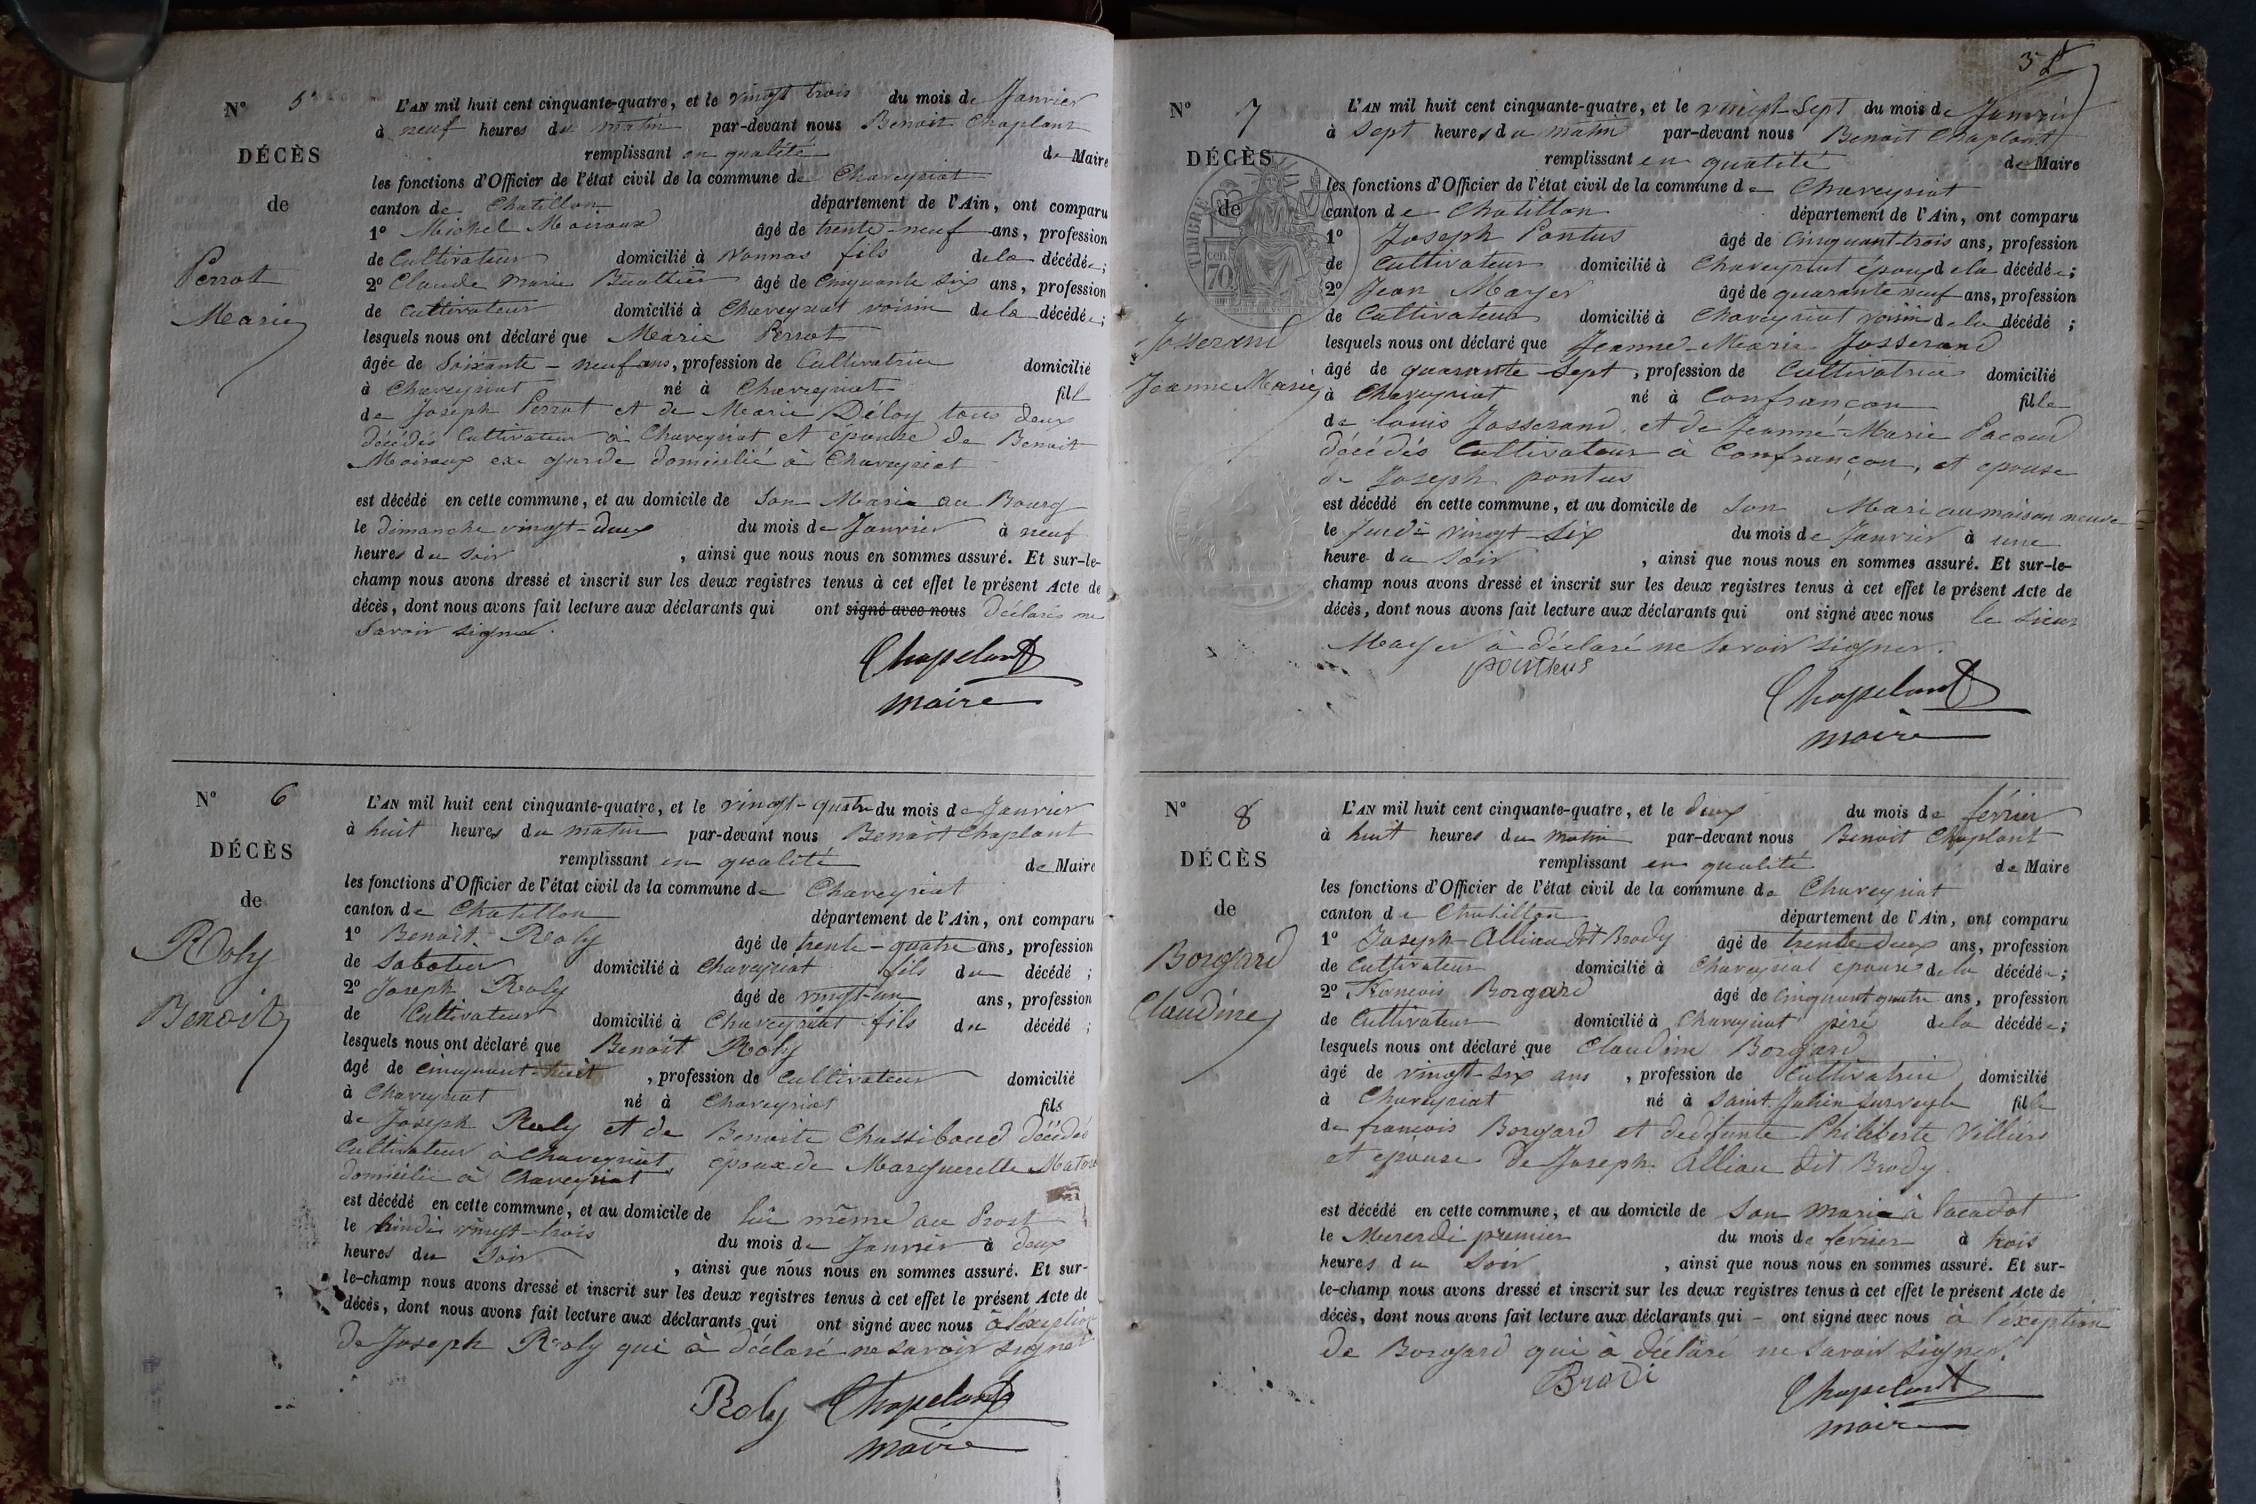 N° 5
DÉCÈS
de
Perrot
Marie
L'AN mil huit cent cinquante-quatre, et le vingt trois du mois de Janvier
à neuf heures du matin par-devant nous Benoit Chaplant
remplissant en qualité de Maire
les fonctions d'Officier de l'état civil de la commune de Chaveyriat
canton de Chatillon département de l'Ain, ont comparu
1° Michel Moiroux âgé de trente-neuf ans, profession
de Cultivateur domicilié à Vonnas fils de la décédée;
2° Claude Marie Buathier âgé de Cinquante six ans, profession
de Cultivateur domicilié à Chaveyriat voisin de la décédée;
lesquels nous ont déclaré que Marie Perrot
âgée de Soixante-neuf ans, profession de Cultivatrice domicilié
à Chaveyriat né à Chaveyriat fill
de Joseph Perrot et de Marie Déloy tous deux
décédés Cultivateur à Chaveyriat et épouse de Benoit
Moiroux exe garde domicilié à Chaveyriat
est décédé en cette commune, et au domicile de Son Marie au Bourg
le dimanche vingt-deux du mois de Janvier à neuf
heures du soir, ainsi que nous nous en sommes assuré. Et sur-le-
champ nous avons dressé et inscrit sur les deux registres tenus à cet effet le présent Acte de
décès, dont nous avons fait lecture aux déclarants qui ont signé avec nous déclarés ne
Savoir signé.
Chapelant
maire
N° 6
DÉCÈS
de
Roly
Benoit
L'AN mil huit cent cinquante-quatre, et le vingt-quatre du mois de Janvier
à huit heures du matin par-devant nous Benoit Chaplant
remplissant en qualité de Maire
les fonctions d'Officier de l'état civil de la commune de Chaveyriat
canton de Chatillon département de l'Ain, ont comparu
1° Benoit Roly âgé de trente-quatre ans, profession
de Sabotier domicilié à Chaveyriat fils du décédé;
2° Joseph Roly âgé de vingt-un ans, profession
de Cultivateur domicilié à Chaveyriat fils du décédé;
lesquels nous ont déclaré que Benoit Roly
âgé de Cinquant-huit, profession de Cultivateur domicilié
à Chaveyriat né à Chaveyriat fils
de Joseph Roly et de Benoite Chassiboud décédés
Cultivateur à Chaveyriat époux de Marguerette
domicilié à Chaveyriat
est décédé en cette commune, et au domicile de lui même au Prost
le lundi vingt-trois du mois de Janvier à deux
heures du Soir, ainsi que nous nous en sommes assuré. Et sur-
le-champ nous avons dressé et inscrit sur les deux registres tenus à cet effet le présent Acte de
décès, dont nous avons fait lecture aux déclarants qui ont signé avec nous à l'exeption
de Joseph Roly qui à déclaré ne savoir signer
Roly Chapelant
maire
3
N° 7
DÉCÈS
de
TIMBRE
70
Josserand
Jeanne Marie
L'AN mil huit cent cinquante-quatre, et le vingt-Sept du mois de Janvier
à sept heures du matin par-devant nous Benoit Chaplant
remplissant en qualité de Maire
les fonctions d'Officier de l'état civil de la commune de Chaveyriat
canton de Chatillon département de l'Ain, ont comparu
1° Joseph Pontus âgé de Cinquant-trois ans, profession
de Cultivateur domicilié à Chaveyriat époux de la décédée;
2° Jean Mayer âgé de quarante neuf ans, profession
de Cultivateur domicilié à Chaveyriat voisin de la décédé;
lesquels nous ont déclaré que Jeanne-Marie Josserand
âgé de quarante-Sept, profession de Cultivatrice domicilié
à Chaveyriat né à Confrançon fille
de louis Josserand et de Jeanne Marie Pacoud
décédés Cultivateur à Confrançon, et epouse
de Joseph pontus
est décédé en cette commune, et au domicile de Son Mari au maison neuve
le Jeudi vingt-six du mois de Janvier à une
heure du Soir, ainsi que nous nous en sommes assuré. Et sur-le-
champ nous avons dressé et inscrit sur les deux registres tenus à cet effet le présent Acte de
décès, dont nous avons fait lecture aux déclarants qui ont signé avec nous le sieur
Mayer à déclaré ne Savoir signer.
ponthus
Chappelant
maire
N° 8
DÉCÈS
de
Borgard
Claudine
L'AN mil huit cent cinquante-quatre, et le deux du mois de février
à huit heures du matin par-devant nous Benoit Chaplant
remplissant en qualité de Maire
les fonctions d'Officier de l'état civil de la commune de Chaveyriat
canton de Chatillon département de l'Ain, ont comparu
1° Joseph Alliau dit Brody âgé de trente deux ans, profession
de Cultivateur domicilié à Chaveyriat epoux de la décédée;
2° François Borgard âgé de Cinquant quatre ans, profession
de Cultivateur domicilié à Chaveyriat père de la décédée;
lesquels nous ont déclaré que Claudine Borgard
âgé de vingt-six ans, profession de Cultivatrice domicilié
à Chaveyriat né à Saint Julien surveyle fille
de françois Borgard et dedefunte Philiberte Villiers
et epouse de Joseph Alliau dit Brody.
est décédé en cette commune, et au domicile de Son Marie à
le Mercredi premier du mois de février à trois
heures du Soir, ainsi que nous nous en sommes assuré. Et sur-
le-champ nous avons dressé et inscrit sur les deux registres tenus à cet effet le présent Acte de
décès, dont nous avons fait lecture aux déclarants qui - ont signé avec nous à l'exeption
de Borgard qui à déclaré ne Savoir signer.
Brodi
Chapelant
maire